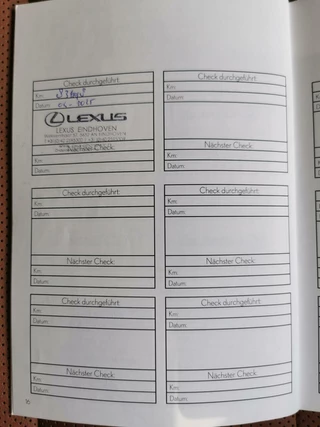 Check durchgeführt:
Km:
Datum:
LEXUS
LEXUS EINDHOVEN
Nächster Check:
Km:
Datum:
Check durchgeführt:
Km:
Datum:
Nächster Check:
Km:
Datum:
Check durchgeführt:
Km:
Datum:
Nächster Check:
Km:
Datum:
Check durchgeführt:
Km:
Datum:
Nächster Check:
Km:
Datum:
Check durchgeführt:
Km:
Datum:
Nächster Check:
Km:
Datum:
Check durchgeführt:
Km:
Datum:
Nächster Check:
Km:
Datum: